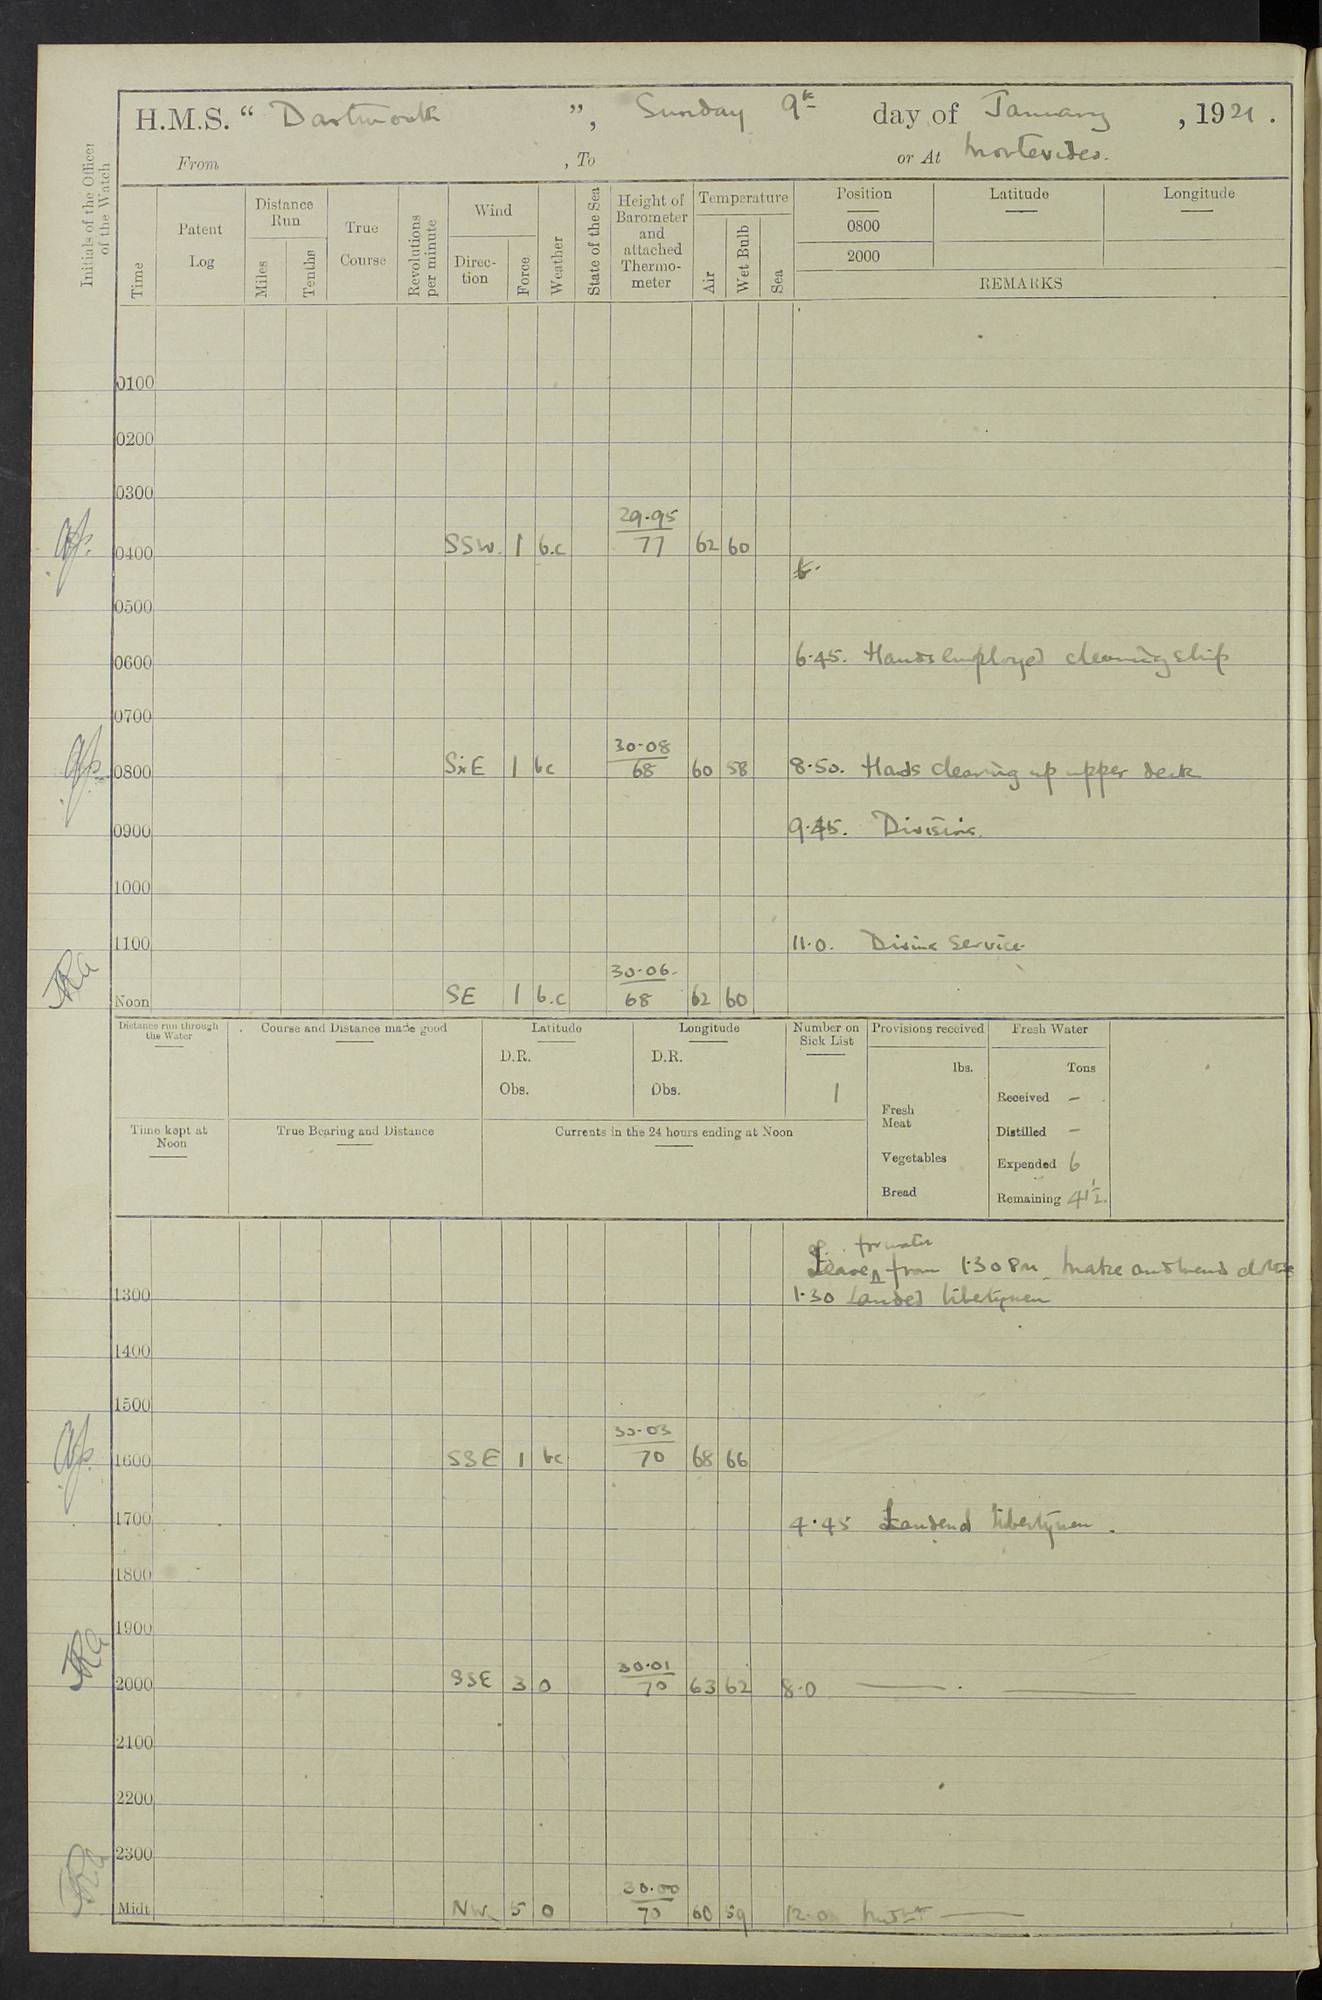 H.M.S. “ Dartmouth ”, Sunday 9th day of January, 1921.
From , To or At Montevideo.
Initials of the Officer of the Watch
Time
Patent Log
Distance Run
Miles
Tenths
True Course
Revolutions per minute
Wind
Direc-tion
Force
Weather
State of the Sea
Height of Barometer and attached Thermo-meter
Temperature
Air
Wet Bulb
Sea
Position
0800
2000
Latitude
Longitude
REMARKS
0100
0200
0300
29.95
0400 SSW. 1 b.c 77 62 60
0500
0600 6.45. Hands employed cleaning ship
0700
30.08
0800 SxE 1 bc 68 60 58 8.50. Hands clearing up upper deck
0900 9.45. Divisions.
1000
1100 11.0. Divine Service
30.06.
Noon SE 1 b.c 68 62 60
Distance run through the Water
Course and Distance made good
Latitude
D.R.
Obs.
Longitude
D.R.
Obs.
Number on Sick List
1
Provisions received
lbs.
Fresh Meat
Vegetables
Bread
Fresh Water
Tons
Received –
Distilled –
Expended 6
Remaining 41½.
Time kept at Noon
True Bearing and Distance
Currents in the 24 hours ending at Noon
Leave from 1.30 PM. Make and mend clothes
1300 1.30 Landed libertymen
1400
1500
30.03
1600 SSE 1 bc 70 68 66
1700 4.45 Landend libertymen.
1800
1900
30.01
2000 SSE 3 o 70 63 62 8.0
2100
2200
2300
30.00
Midt. NW. 5 o 70 60 59 12.0